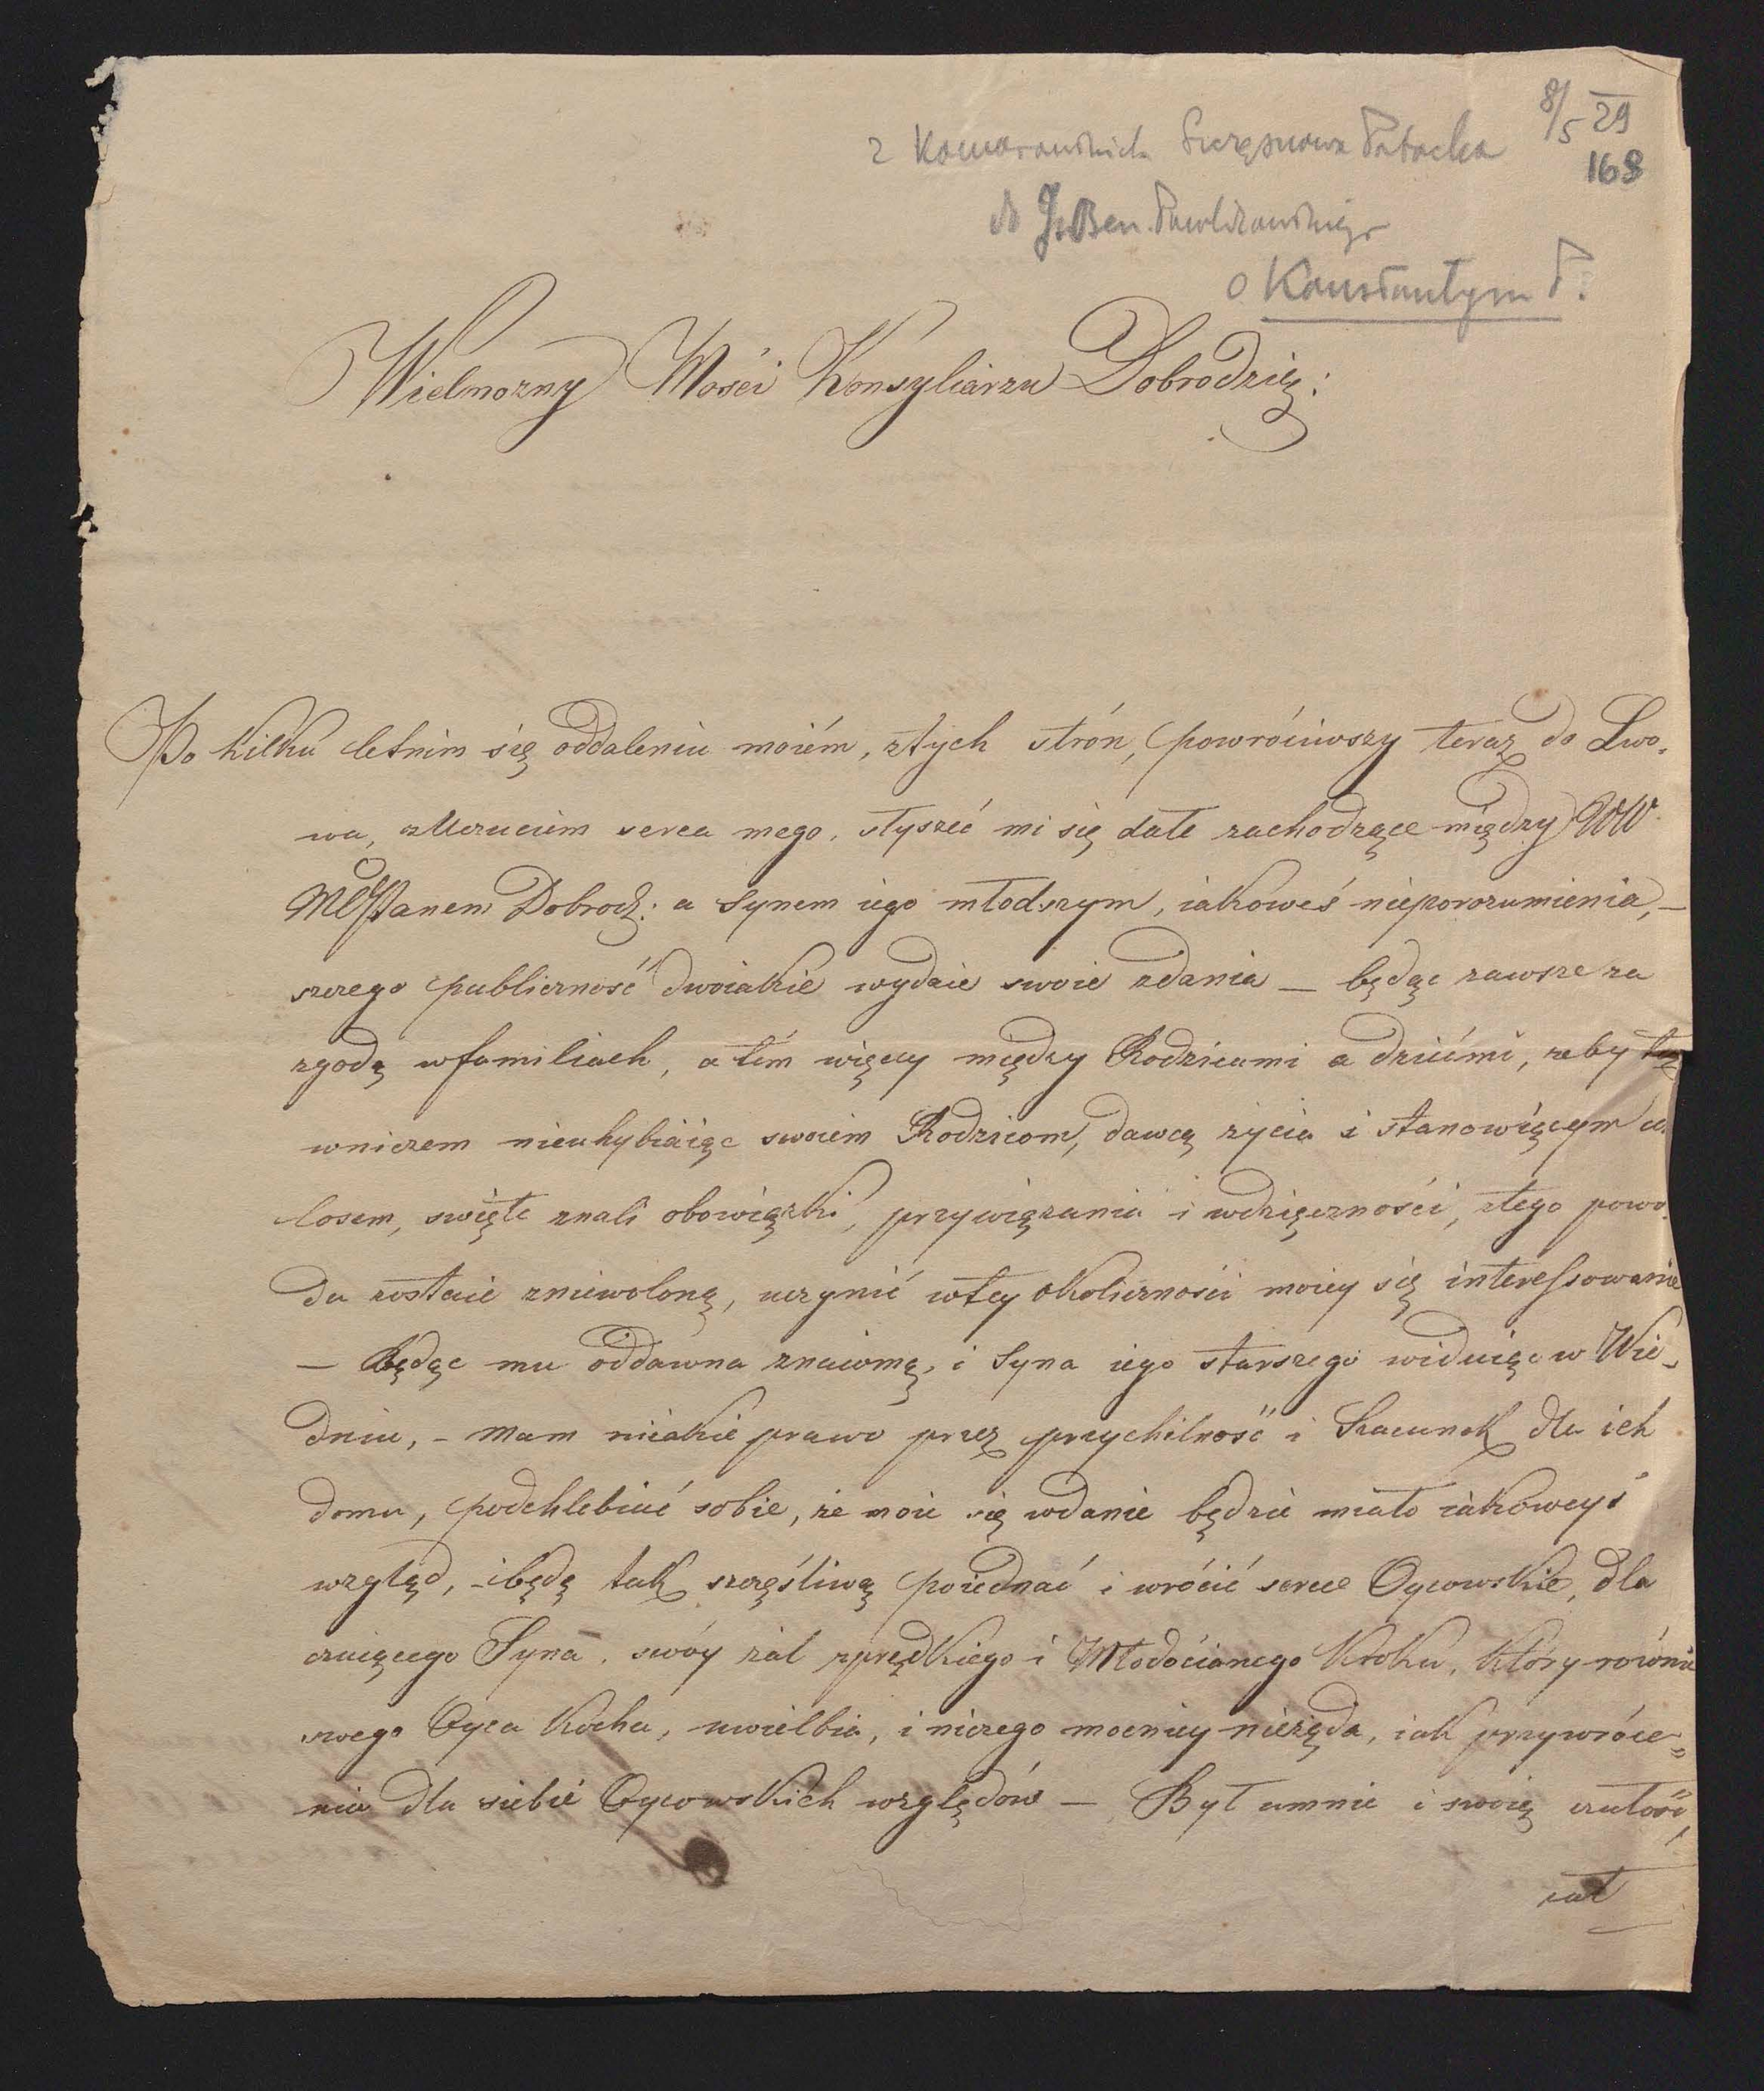 8/5 29
168
z Komorowskich Szczęsnowa Potocka
do J. Ben. Pawlikowskiego
o Konstantym P.
Wielmozny Mości Konsyliarzu Dobrodzię:
Po kilku letnim się oddaleniu moiém, ztych strón, powróciwszy teraz do Lwo,
wa, zUczuciem serca mego, słyszeć mi się dałe zachodzące między WW.
MCPanem Dobrodz: a Synem iego młodszym, iakoweś nieporozumienia, –
szczego publiczność dwoiakie wydaie swoie zdania – będąc zawsze za
zgodą wfamiliach, a tém więcey między Rodzicami a dziećmi, żeby tę
wniczem nieuhybiaiąc swoiem Rodzicom, dawcą życia i stanowiącym ich
losem, swięte znali obowiązki, przywiązania i wdzięczności, ztego powo,
du zostaie zniewoloną, uczynić wtey okoliczności moiey się interessowanie
– Będąc mu oddawna znaiomą, i Syna iego starszego widuiąc w Wie,
dniu, – mam nieiakie prawo przez przychilność i Szacunek dla ich
domu, podchlebiać sobie, że moie się wdanie będzie miało iakoweyś
wzgląd, – ibędę tak szczęśliwą poiednać i wrócić serce Oycowskie, dla
czuiącego Syna, swóy żal zprędkiego i Młodocianego Kroku, który równie
swego Oyca Kocha, uwielbia, i niczego mocniey nieżąda, iak przywróce„
nia dla siebie Oycowskich względów – Był umnie i swoię czułość,
żal